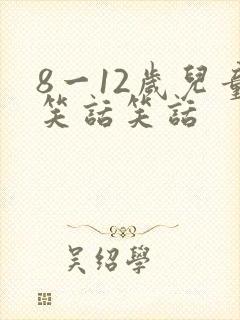 8一12歲兒童
笑話笑話
吴绍學